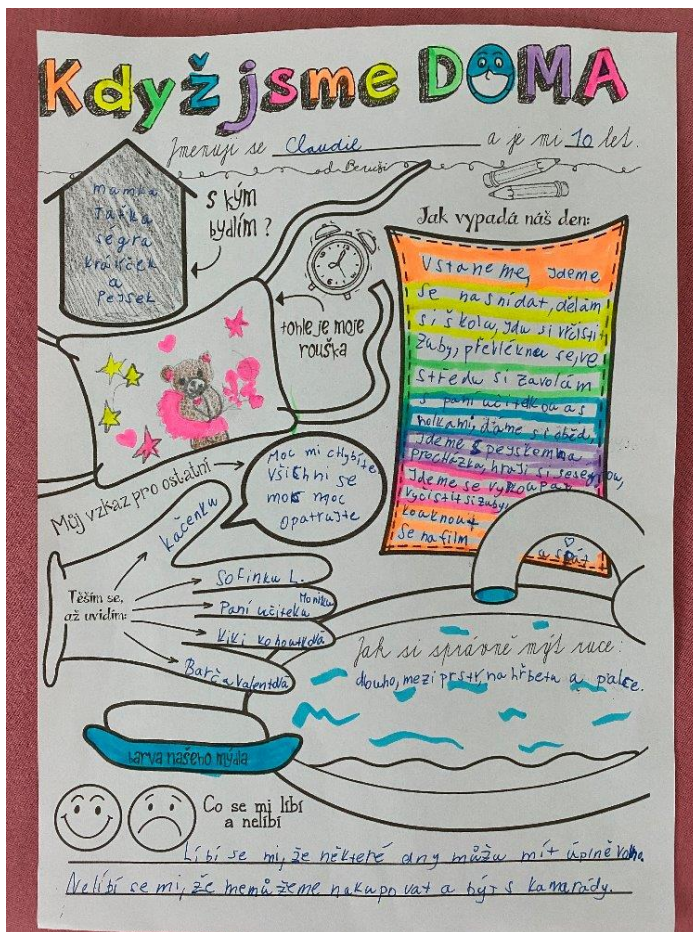 Když jsme DOMA
Jmenuji se Claudie a je mi 10 let.
od Beruši
mamka
Taťka
ségra
králíček
a
Pejsek
s kým
bydlím?
tohle je moje
rouška
Jak vypadá náš den:
Vstaneme, Jdeme
se nasnídat, dělám
si školu, jdu si vičistit
zuby, převléknu se, ve
středu si zavolám
s paní učitelkou a s
holkami, dáme si oběd,
Jdeme s pejskem na
procházku, hraji si se segrou,
Jdeme se vykoupat
vycistit si zuby,
kouknout
se na film
a spát
Můj vzkaz pro ostatní
Moc mi chybíte
Všichni se
moc moc
opatrujte
Těším se,
až uvidím:
Kačenku
Sofinku L.
Paní učitelku Moniku
Kiki kohoutková
Barč a Valentová
Jak si správně mýt ruce:
dlouho, mezi prsty, na hřbetu a palce.
barva našeho mýdla
Co se mi líbí
a nelíbí
Líbí se mi, že některé dny můžu mít úplně volno.
Nelíbí se mi, že nemůžeme nakupovat a být s kamarády.